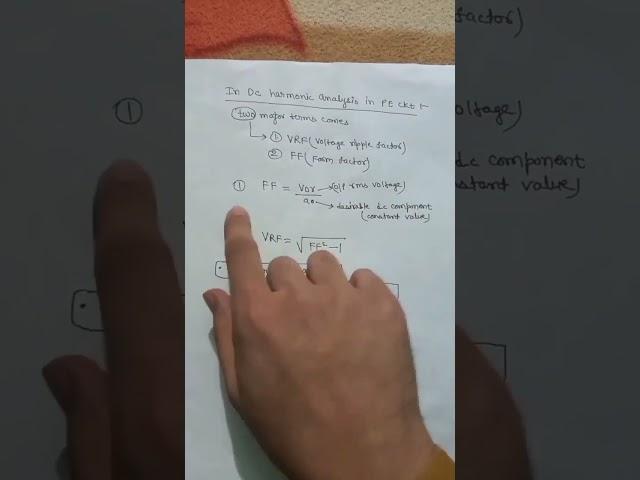 In DC harmonic analysis in PE ckt :-
two major terms comes
① VRF (Voltage ripple factor)
② FF (Form factor)
① FF = Vor / a₀
→ O/P rms voltage)
→ desirable dc component
(constant value)
VRF = √(FF² - 1)